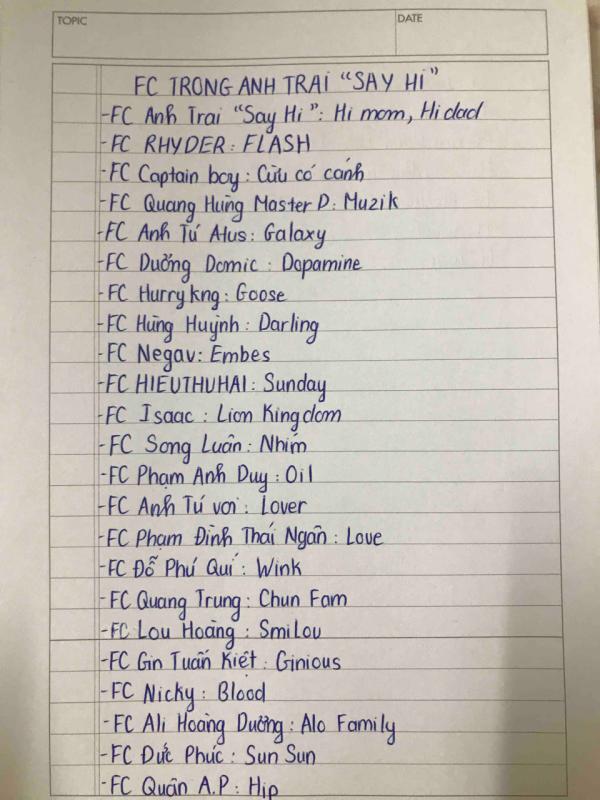 TOPIC
DATE
FC TRONG ANH TRAI "SAY HI"
-FC Anh Trai "Say Hi": Hi mom, Hi dad
-FC RHYDER: FLASH
-FC Captain boy: Cừu có cánh
-FC Quang Hùng Master D: Muzik
-FC Anh Tú Atus: Galaxy
-FC Dương Domic: Dopamine
-FC Hurrykng: Goose
-FC Hùng Huỳnh: Darling
-FC Negav: Embes
-FC HIEUTHUHAI: Sunday
-FC Isaac: Lion Kingdom
-FC Song Luân: Nhím
-FC Phạm Anh Duy: Oil
-FC Anh Tú voi: Lover
-FC Phạm Đình Thái Ngân: Love
-FC Đỗ Phú Quí: Wink
-FC Quang Trung: Chun Fam
-FC Lou Hoàng: Smilou
-FC Gin Tuấn Kiệt: Ginious
-FC Nicky: Blood
-FC Ali Hoàng Dương: Alo Family
-FC Đức Phúc: Sun Sun
-FC Quân A.P: Hip